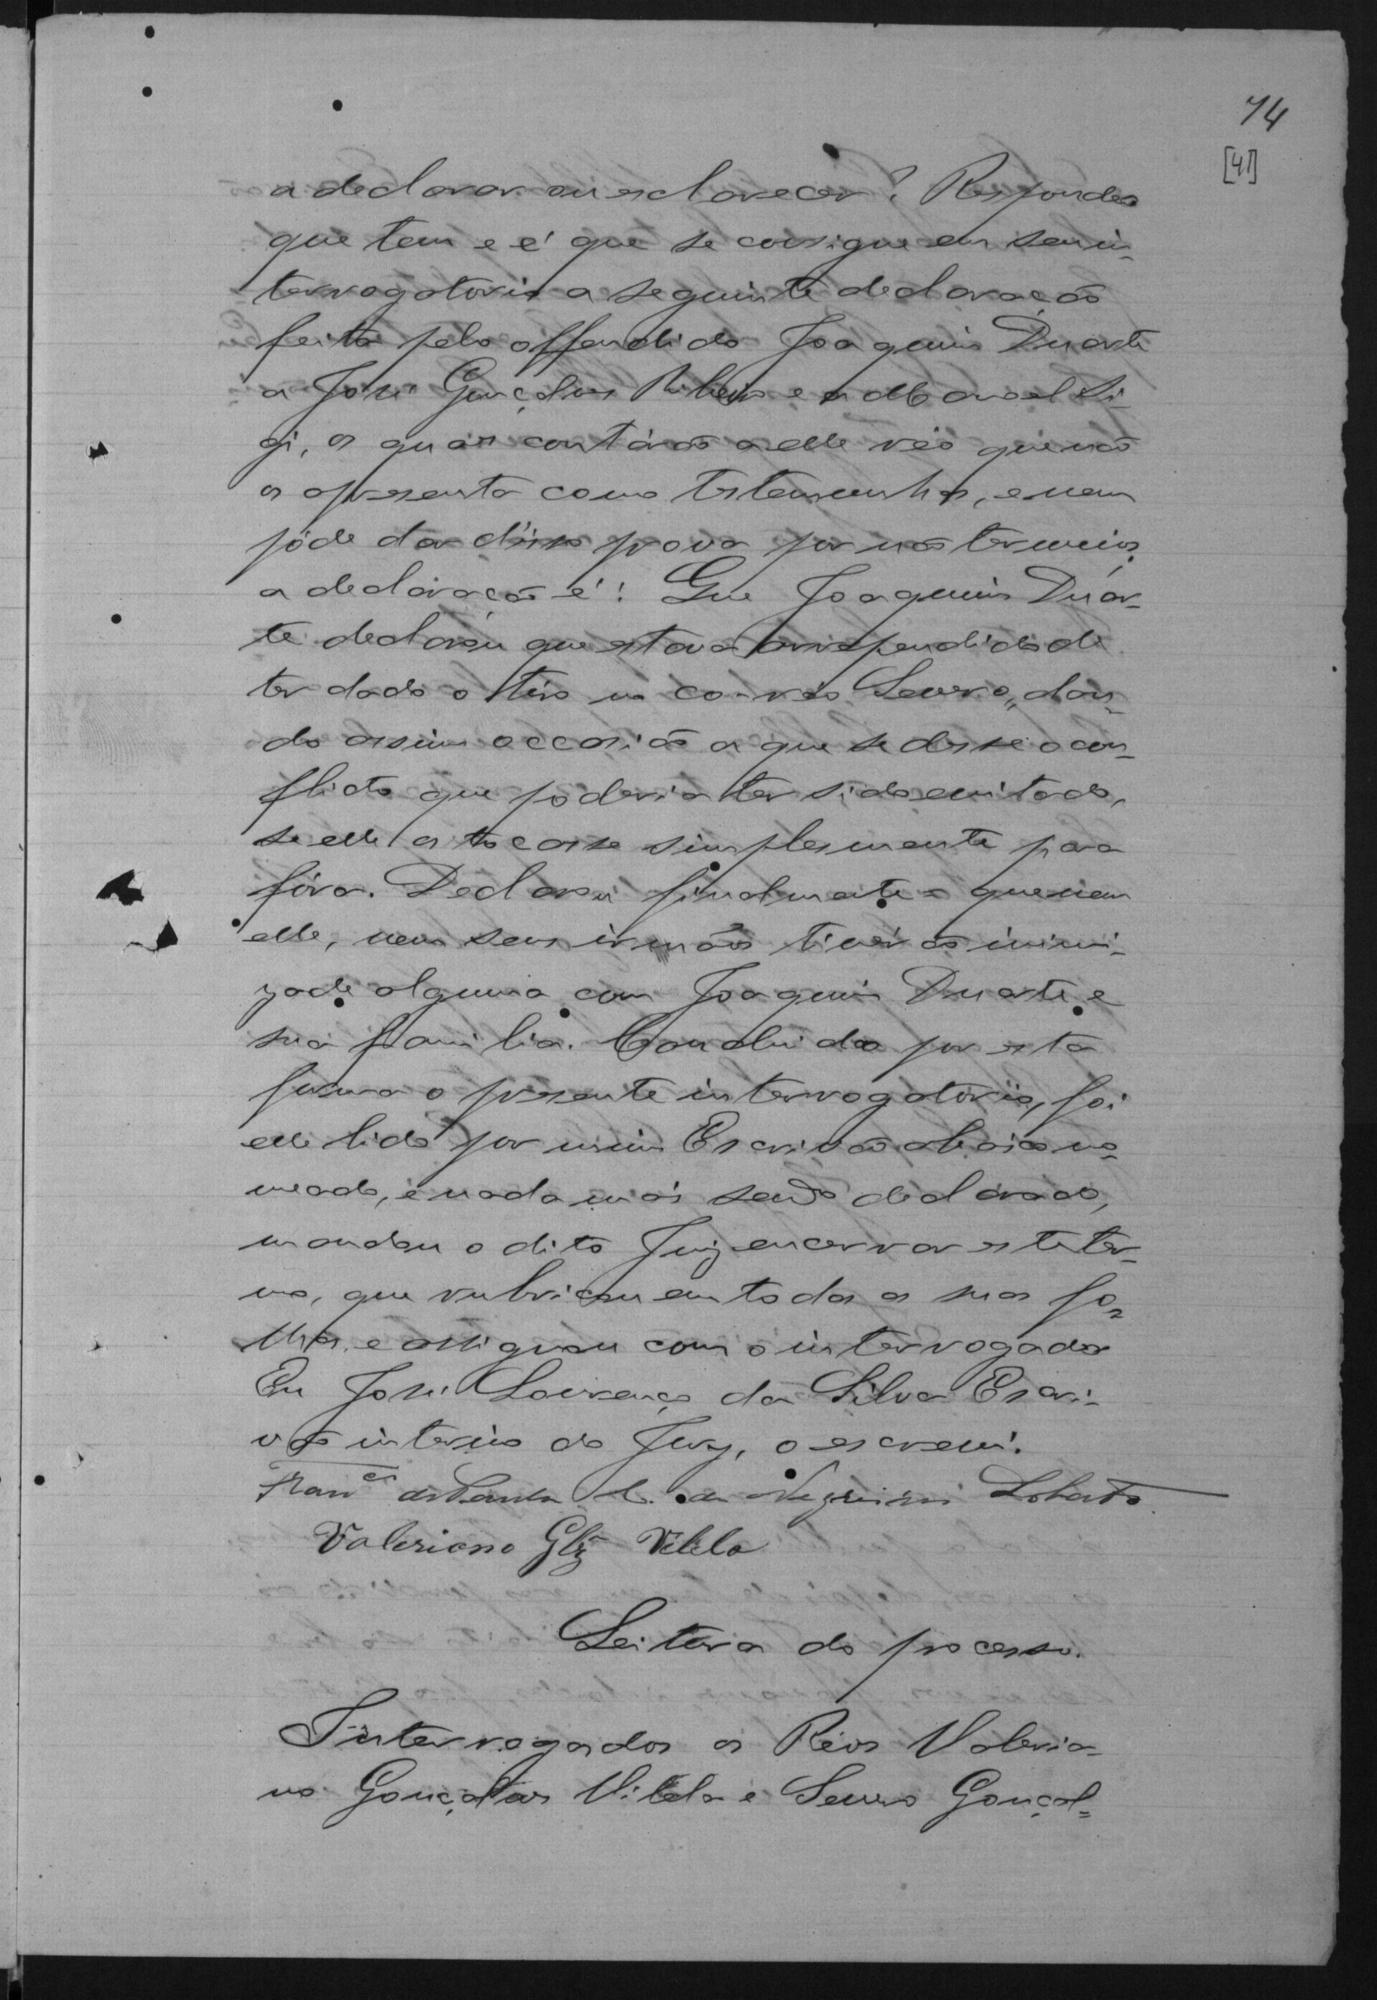 74
[41]
a declarar ou esclarecer? Respondeo
que tem e é que se consigne em seu in-
terrogatorio a seguinte declaração
feita pelo offendido Joaquim Duarte
a José Gonçalves Ribeiro e a Manoel
os quaes contárão a elle réo que não
os apresenta como testemunhas, e nem
póde dar d'isso prova por nós termeios
a declaração é: Que Joaquim Duar-
te declarou que estava arrependido de
ter dado o tiro no co-reo Severo, dan-
do assim occasião a que se désse o con-
flicto que poderia ter sido evitado,
se elle os tocasse simplesmente para
fóra. Declarou finalmente = que nem
elle, nem seus irmãos tiverão inimi-
zade alguma com Joaquim Duarte e
sua familia. Concluido por esta
forma o presente interrogatorio, foi
elle lido por mim Escrivão abaixo no-
meado, e nada mais sendo declarado,
mandou o dito Juiz encerrar este ter-
mo, que rubricou em todas as suas fo-
lhas e assignou com o interrogado
Eu José Lourenço da Silva Escri-
vão interino do Jury, o escrevi.
Franco de Paula L. de Negreiros Lobato
Valeriano Glz Vilela
Leitura do processo.
Interrogados os Réos Valeria-
no Gonçalves Vilela e Severo Gonçal-